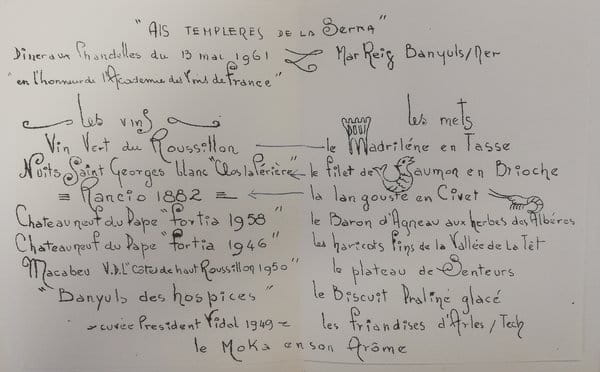 "AIS TEMPLERES DE LA Serra"
Diner aux Chandelles du 13 mai 1961
Mas Reig Banyuls/Mer
"en l'honneur de l'Academie des Vins de France"
Les vins
Les mets
Vin Vert du Roussillon
le Madrilène en Tasse
Nuits Saint Georges blanc "Clos la Périère"
le filet de Saumon en Brioche
= Rancio 1882 =
la langouste en Civet
Chateauneuf du Pape "fortia 1958"
le Baron d'Agneau aux herbes des Albéres
Chateauneuf du Pape "fortia 1946"
les haricots fins de la Vallée de La Têt
Macabeu V.D.L "Côtes de haut Roussillon 1950"
le plateau de Senteurs
"Banyuls des hospices"
le Biscuit Praliné glacé
cuvée President Vidal 1949
les friandises d'Arles/Tech
le Moka en son Arôme